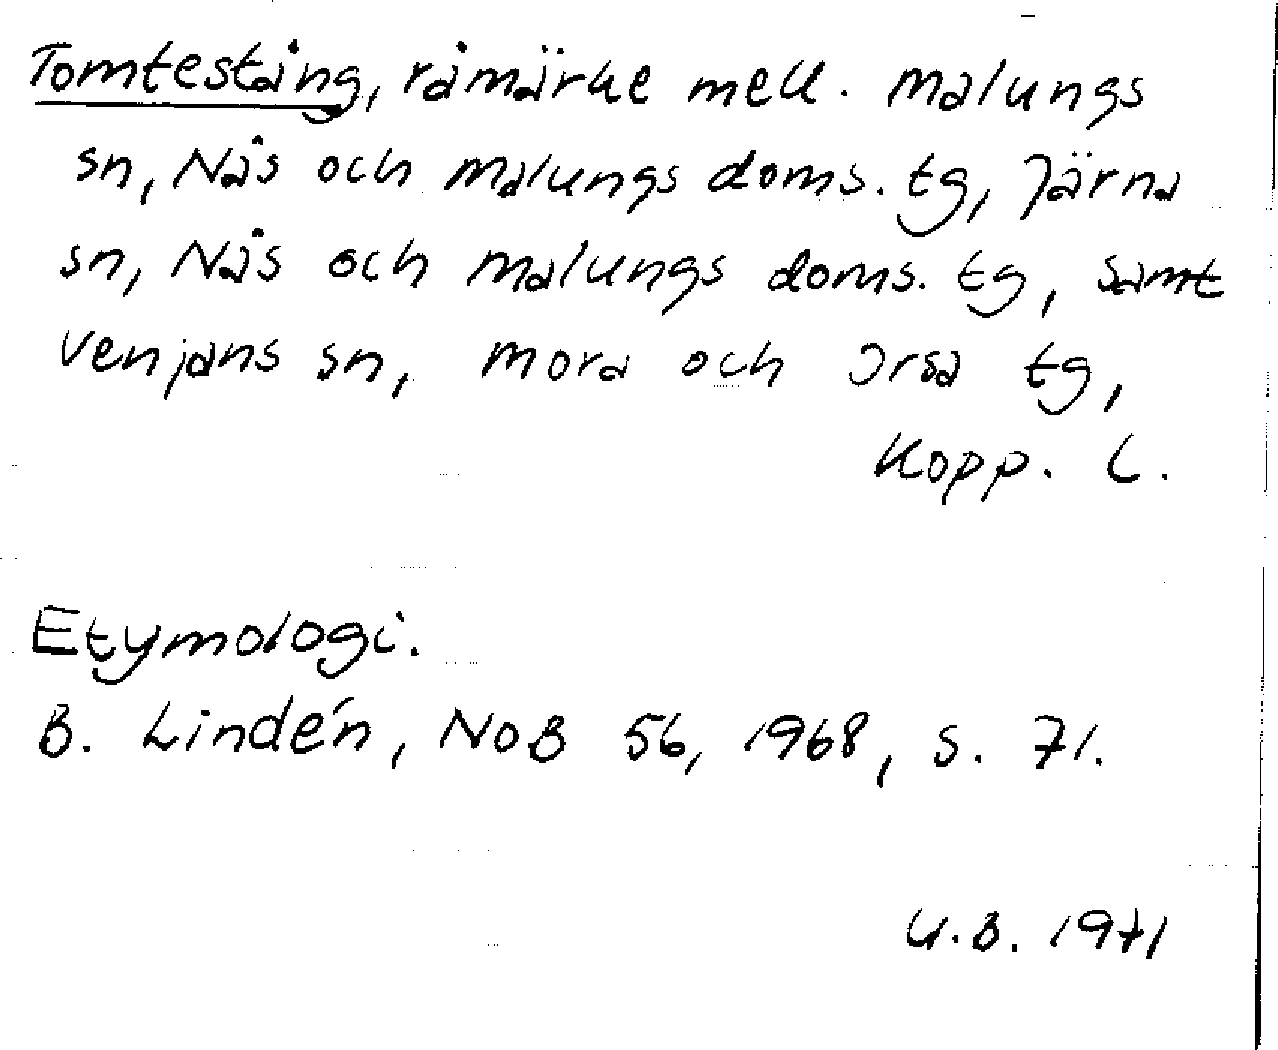 Tomtestång, råmärke mell. Malungs
sn, Nås och Malungs doms. tg, Järna
sn, Nås och Malungs doms. tg, samt
Venjans sn, Mora och Orsa tg,
Kopp. l.
Etymologi.
B. Lindén, NoB 56, 1968, s. 71.
U.B. 1971